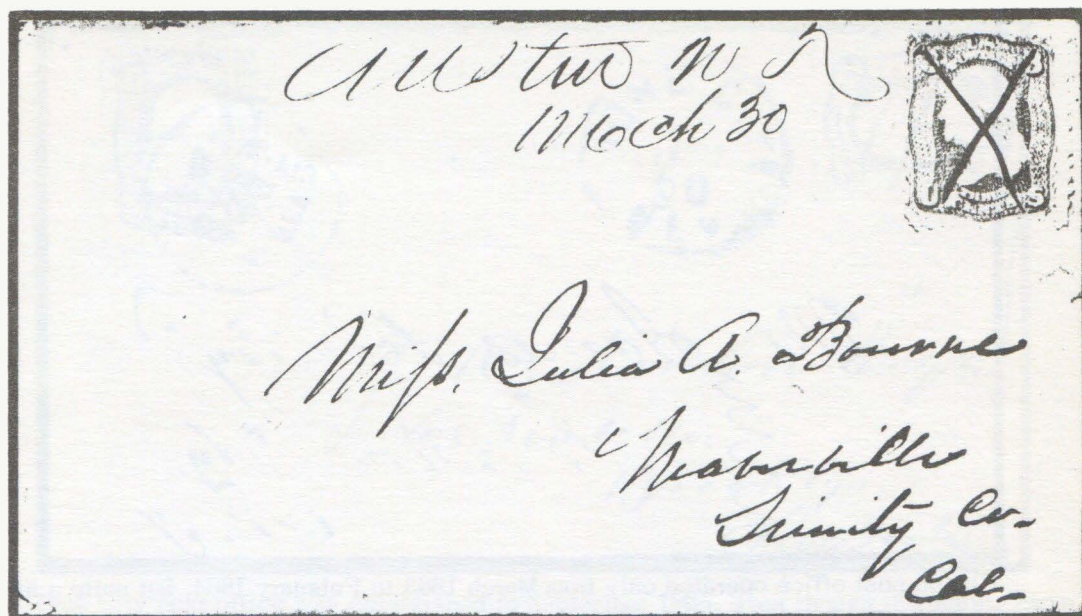 Austin N T
March 30
U S
Miss. Julia A. Bourne
Weaverville
Trinity Co.
Cal.